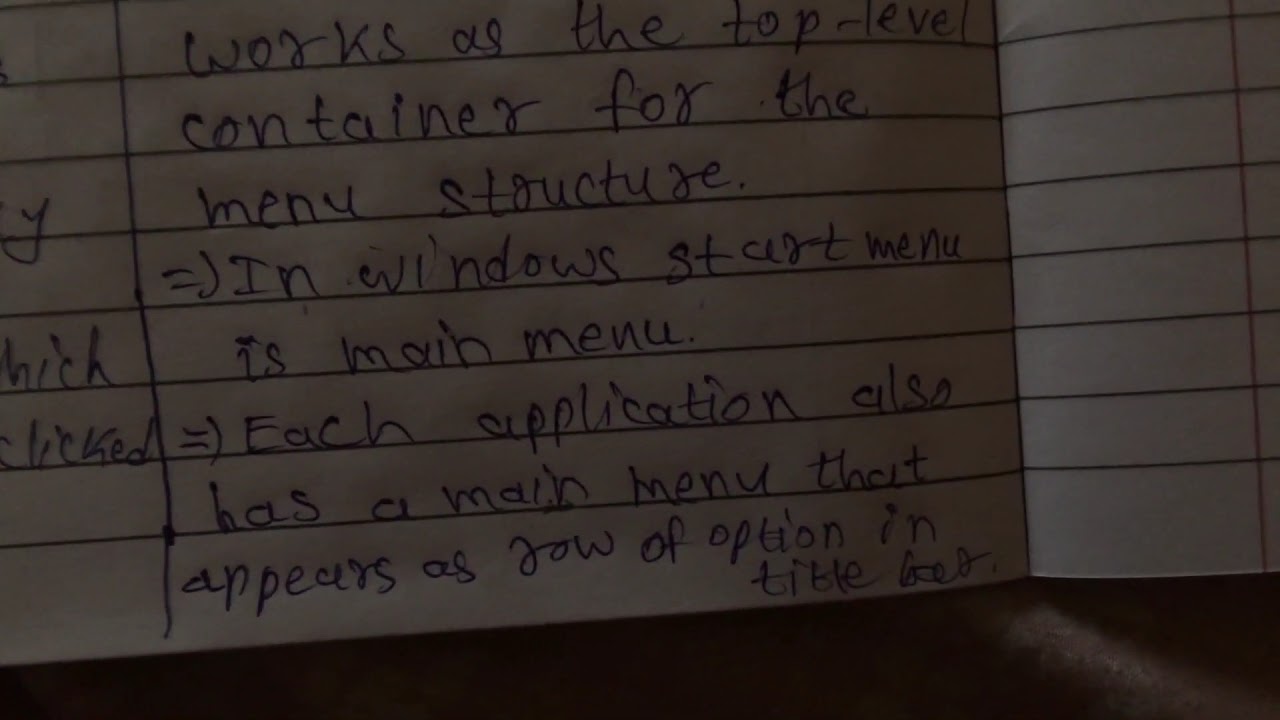 works as the top-level
container for the
y
menu structure.
=> In windows start menu
hich
is main menu.
clicked
=> Each application also
has a main menu that
appears as row of option in
title bar.